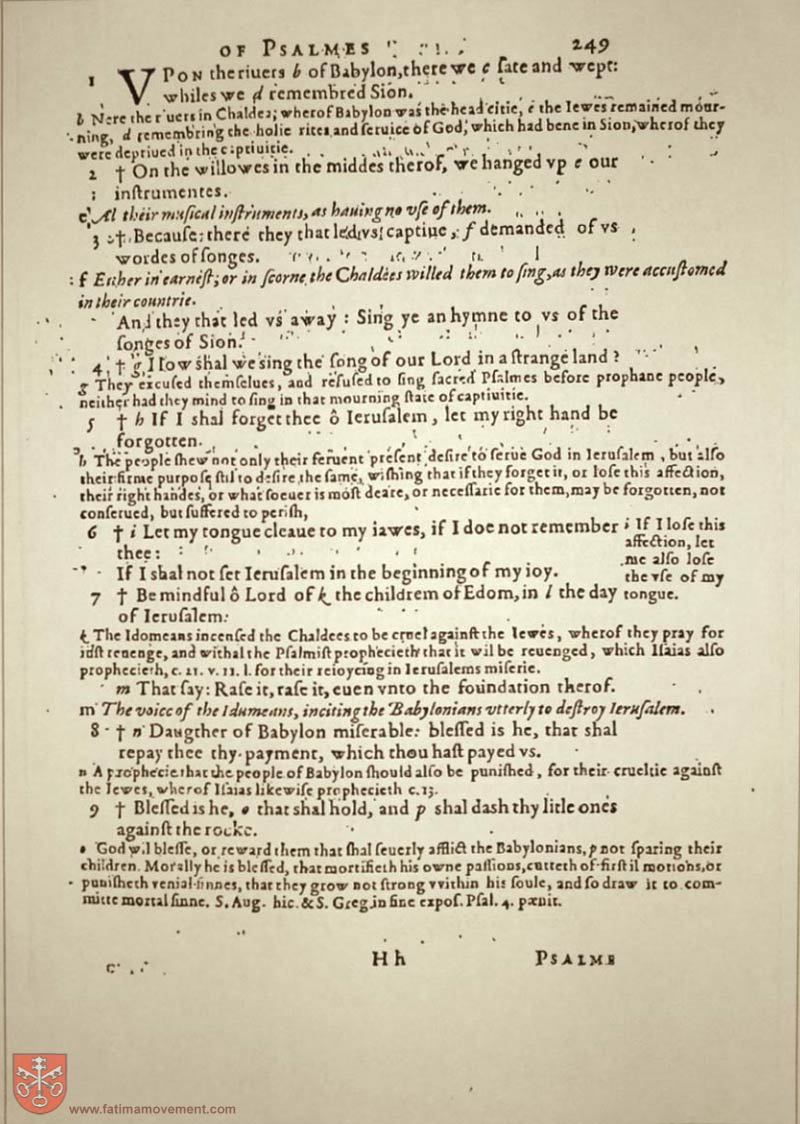 OF PSALMES 249
1 VPON the riuers b of Babylon, there we c ſate and wept:
whiles we d remembred Sion.
b Nere the riuers in Chaldea; wherof Babylon was the head citie, c the Iewes remained mour-
ning, d remembring the holie rites and ſeruice of God, which had bene in Sion, wherof they
were depriued in the captiuitie.
2 † On the willowes in the middes therof, we hanged vp e our
inſtrumentes.
e Al their muſical inſtruments, as hauing no vſe of them.
3 † Becauſe there they that led vs captiue, f demanded of vs
wordes of ſonges.
f Either in earneſt, or in ſcorne the Chaldees willed them to ſing, as they were accuſtomed
in their countrie.
And they that led vs away: Sing ye an hymne to vs of the
ſonges of Sion.
4 † g How ſhal we ſing the ſong of our Lord in a ſtrange land?
g They excuſed themſelues, and refuſed to ſing ſacred Pſalmes before prophane people,
neither had they mind to ſing in that mourning ſtate of captiuitie.
5 † h If I shal forget thee ô Ieruſalem, let my right hand be
forgotten.
h The people ſhew not only their feruent preſent deſire to ſerue God in Ieruſalem, but alſo
their firme purpoſe ſtil to deſire the ſame, wiſhing that if they forget it, or loſe this affection,
their right handes, or what ſoeuer is moſt deare, or neceſſarie for them, may be forgotten, not
conſerued, but ſuffered to periſh,
6 † i Let my tongue cleaue to my iawes, if I doe not remember
thee:
i If I loſe this
affection, let
me alſo loſe
the vſe of my
tongue.
If I shal not ſet Ieruſalem in the beginning of my ioy.
7 † Be mindful ô Lord of k the childrem of Edom, in l the day
of Ieruſalem:
k The Idomeans incenſed the Chaldees to be cruel againſt the Iewes, wherof they pray for
iuſt reuenge, and withal the Pſalmiſt prophecieth that it wil be reuenged, which Iſaias alſo
prophecieth, c. 21. v. 11. l. for their reioycing in Ieruſalems miſerie.
m That ſay: Raſe it, raſe it, euen vnto the foundation therof.
m The voice of the Idumeans, inciting the Babylonians vtterly to deſtroy Ieruſalem.
8 † n Daugther of Babylon miſerable: bleſſed is he, that shal
repay thee thy payment, which thou haſt payed vs.
n A prophecie that the people of Babylon ſhould alſo be puniſhed, for their crueltie againſt
the Iewes, wherof Iſaias likewiſe prophecieth c. 13.
9 † Bleſſed is he, o that shal hold, and p shal dash thy litle ones
againſt the rocke.
o God wil bleſſe, or reward them that ſhal ſeuerly afflict the Babylonians, p not ſparing their
children. Morally he is bleſſed, that mortifieth his owne paſſions, cutteth of firſt il motions, or
puniſheth venial ſinnes, that they grow not ſtrong vvithin his ſoule, and ſo draw it to com-
mitte mortal ſinne. S. Aug. hic. & S. Greg. in fine expoſ. Pſal. 4. pœnit.
H h PSALME
www.fatimamovement.com